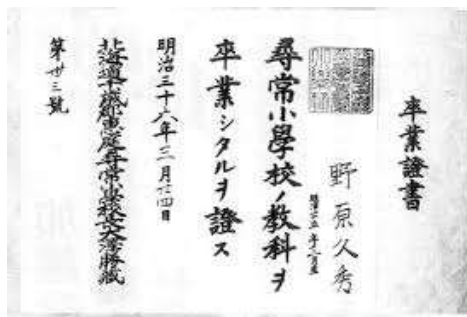 卒業證書
野原久秀
明治廿五年
尋常小學校ノ教科ヲ
卒業シタルヲ證ス
明治三十八年三月廿四日
北海道千歳郡恵庭尋常小學校長
第廿三號